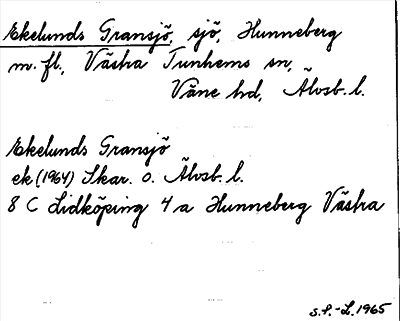 Ekelunds Gransjö, sjö, Hunneberg
m. fl., Västra Tunhems sn,
Väne hd, Älvsb. l.
Ekelunds Gransjö
ek (1964) Skar. o. Älvsb. l.
8 C Lidköping 4 a Hunneberg Västra
S.F.-L. 1965